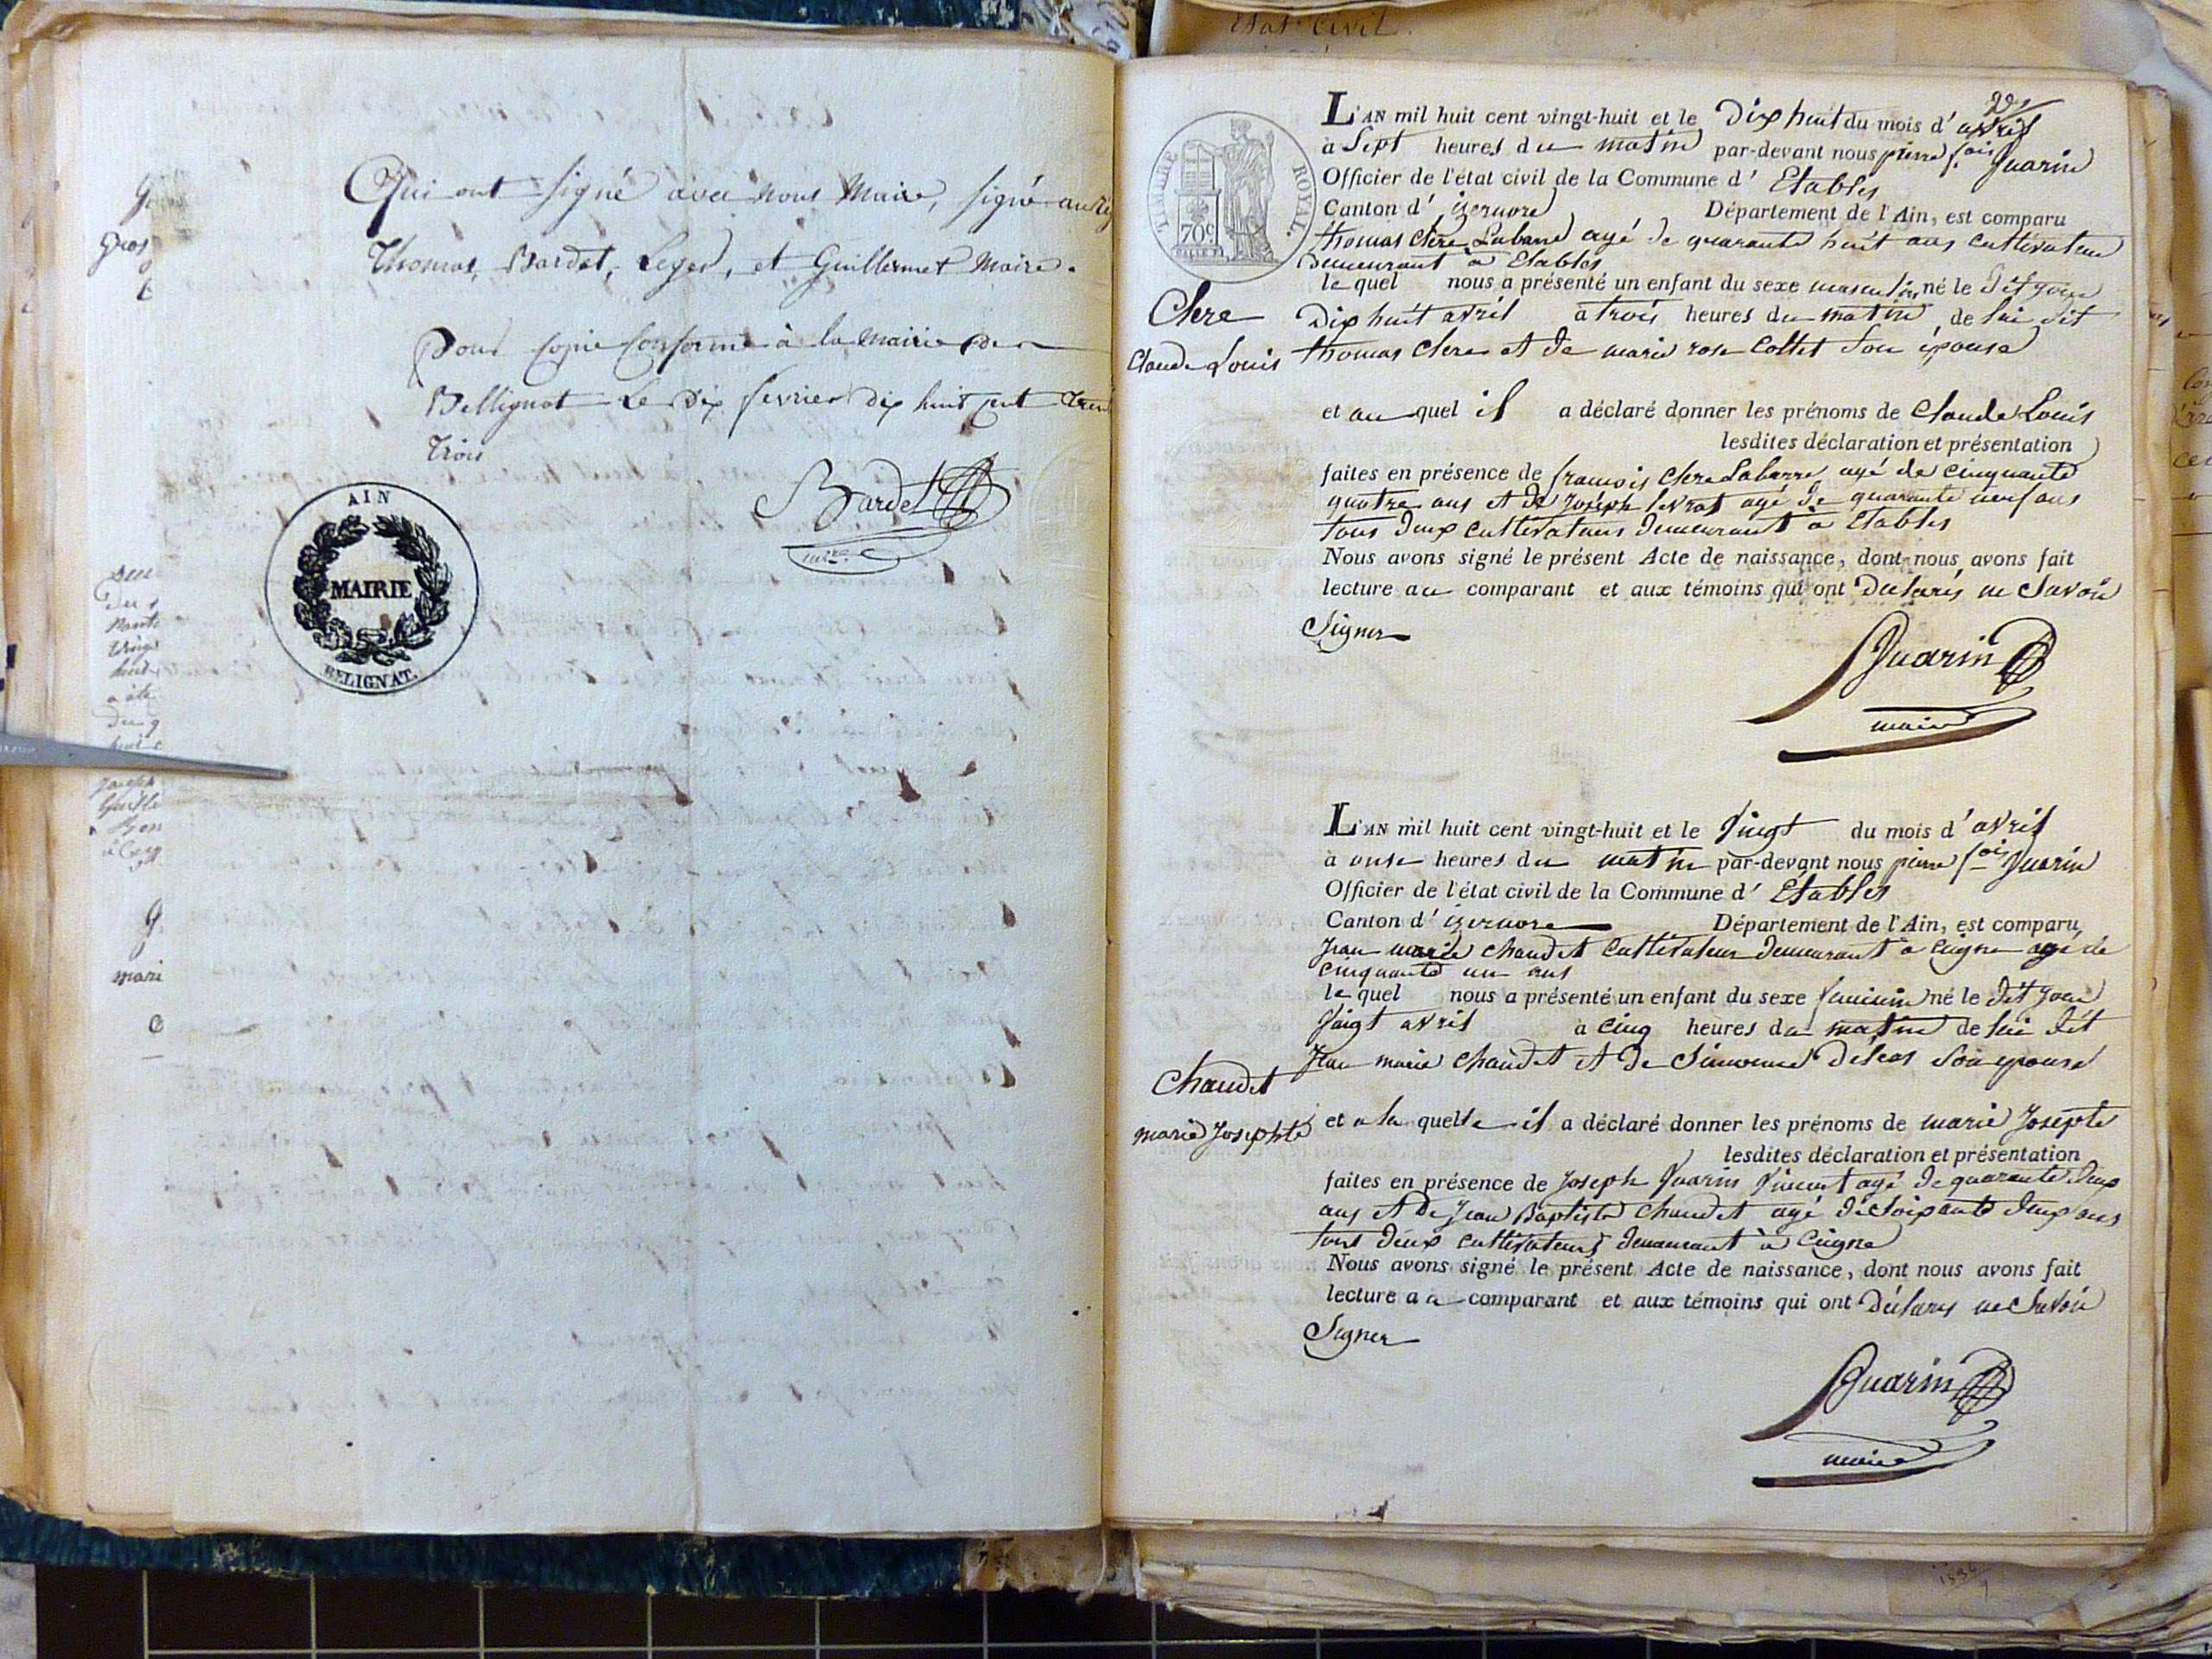 Qui ont signé avec nous Maire, signé
Thomas, Bardet, Leger, et Guillermet Maire.
Pour copie conforme à la mairie de
Bellignat Le dix fevrier dix huit cent
trois
Bardet
AIN
MAIRIE
BELIGNAT.
Etat Civil.
TIMBRE ROYAL.
70c
L'AN mil huit cent vingt-huit et le Dix huit du mois d'avril
à Sept heures du matin par-devant nous pierre fois Juarin
Officier de l'état civil de la Commune d'Etables
Canton d'izernore Département de l'Ain, est comparu
thomas Clere Labarre agé de quarante huit ans cultivateur
Demeurant à Etables
le quel nous a présenté un enfant du sexe masculin né le dit jour
Clere
Dix huit avril à trois heures du matin de lui dit
Claude Louis
thomas Clere et de marie rose Collet son épouse
et au quel il a déclaré donner les prénoms de Claude Louis
lesdites déclaration et présentation
faites en présence de francois Clere Labarre agé de cinquante
quatre ans et de Joseph levrat agé de quarante neuf ans
tous deux cultivateurs Demeurant à Etables
Nous avons signé le présent Acte de naissance, dont nous avons fait
lecture au comparant et aux témoins qui ont Déclarés ne Savoir
Signer
Juarin
maire
L'AN mil huit cent vingt-huit et le Vingt du mois d'avril
à onse heures du matin par-devant nous pierre fois Juarin
Officier de l'état civil de la Commune d'Etables
Canton d'izernore Département de l'Ain, est comparu
Jean marie Chaudet Cultivateur demeurant a Ceigne agé de
cinquante un ans
le quel nous a présenté un enfant du sexe feminin né le dit jour
Vaigt avril à Cinq heures du matin de lui dit
Jean marie Chaudet et de Delcas Son epouse
Chaudet
marie Josephte
et a la quelle il a déclaré donner les prénoms de marie Josephte
lesdites déclaration et présentation
faites en présence de Joseph Juarin Vincent agé de quarante deux
ans et de Jean Baptiste Chaudet agé de soixante deux ans
tous deux cultivateurs demeurant à Ceigne
Nous avons signé le présent Acte de naissance, dont nous avons fait
lecture au comparant et aux témoins qui ont Déclarés ne Savoir
Signer
Juarin
maire